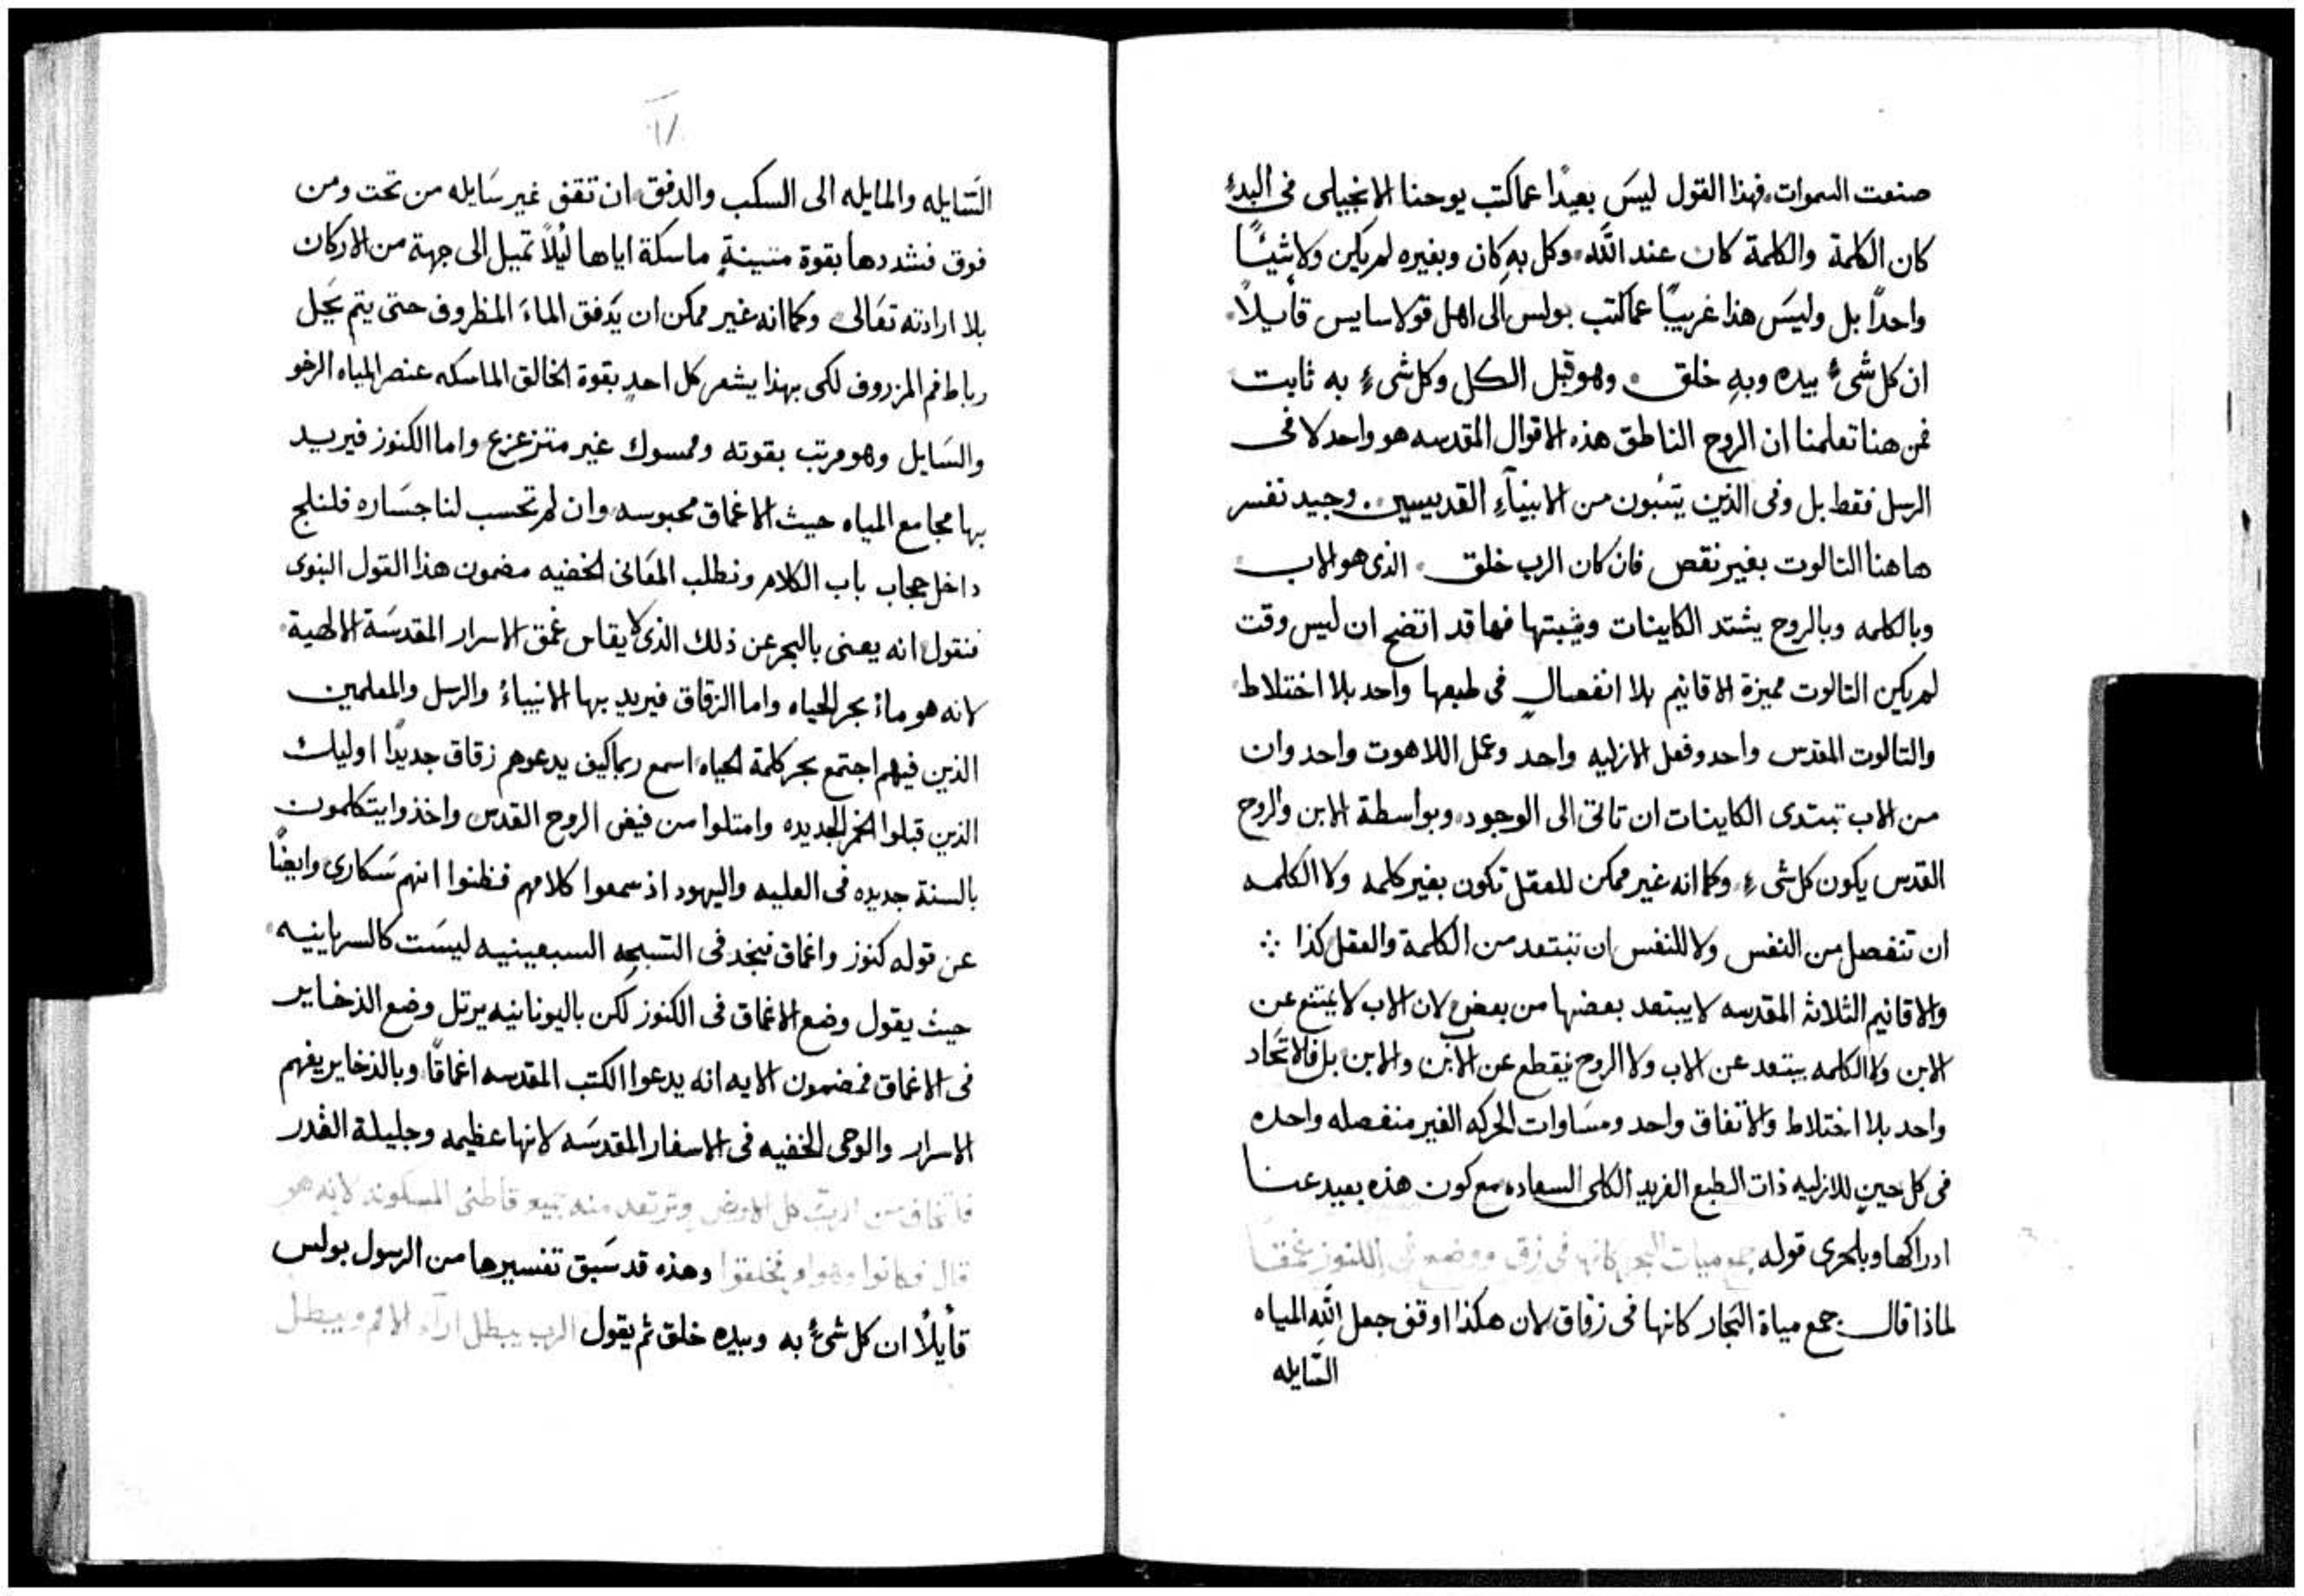 صنعت السموات، فهذا القول ليسَ بعيدًا عما كتب يوحنا الانجيلى فى البدءِ
كان الكلمة والكلمة كان عند الله، وكل بهِ كان وبغيره لم يكن ولا شيئًا
واحدًا بل وليسَ هذا غريبًا عما كتب بولس الى اهل قولاسايس قأيلاً،
ان كل شىءٍ بيده وبهِ خلق. وهو قبل الكل وكل شىءٍ به ثابت
فمن هنا تعلمنا ان الروح الناطق هذه الاقوال المقدسه هو واحد لا فى
الرسل فقط بل وفى الذين يتنبون من الانبيآءِ القديسين. وجيد نفسر
ها هنا التالوت بغير نقص فان كان الرب خلق. الذى هو الاب
وبالكلمه وبالروح يشتد الكاينات ويثبتها فها قد اتضح ان ليس وقت
لم يكن التالوت مميزة الاقانيم بلا انفصالٍ فى طبعها واحد بلا اختلاط
والتالوت المقدس واحد وفعل الازليه واحد وعمل اللاهوت واحد وان
من الاب تبتدى الكاينات ان تاتى الى الوجود، وبواسطة الابن والروح
القدس يكون كل شىءٍ، وكما انه غير ممكن للعقل تكون بغير كلمه ولا الكلمه
ان تنفصل من النفس ولا للنفس ان تبتعد من الكلمة والعقل كذا ∴
والاقانيم الثلاثه المقدسه لا يبتعد بعضها من بعض لان الاب لا يمتنع عن
الابن ولا الكلمه يبتعد عن الاب ولا الروح ينقطع عن الابن والابن بل فالاتحَاد
واحد بلا اختلاط والاتفاق واحد ومسَاوات الحركه الغير منفصله واحده
فى كل حينٍ للازليه ذات الطبع الفريد الكلى السعاده مع كون هذه بعيد عنا
ادراكها وبالحرى قوله جمع ميات البحر كانها فى زق ووضع فى الكنوز عمقًا
لماذا قال جمع مياة البحار كانها فى زقاق لان هكذا اوقف جعل الله المياه
السَايله
السَايله والمايله الى السكب والدفق، ان تقف غير سَايله من تحت ومن
فوق فشددها بقوة متينةٍ ماسكة اياها ليُلاً تميل الى جهة من الاركان
بلا ارادته تعَالى، وكما انه غير ممكن ان يَدفق الماءَ المظروف حتى يتم يَحل
رباط فم المزروف لكى بهذا يشعر كل احدٍ بقوة الخالق الماسكه عنصر المياه الرخو
والسَايل وهو مرتب بقوته وممسوك غير متزعزع واما الكنوز فيريد
بها مجامع المياه حيث الاغماق محبوسه وان لم تحسب لنا جسَاره فلنلج
داخل حجاب باب الكلام ونطلب المعَانى الخفيه مضمون هذا القول النبوى
فنقول انه يعنى بالبحر عن ذلك الذى لا يقاس غمق الاسرار المقدسَة الالهية،
لانه هو ماءُ بحر الحياه واما الزقاق فيريد بها الانبياءُ والرسل والمعلمين
الذين فيهم اجتمع بحر كلمة الحياه، اسمع ربنا كيف يدعوهم زقاق جديدًا اوليك
الذين قبلوا الخمر الجديده وامتلوا من فيض الروح القدس واخذوا يتكلمون
بالسنة جديده فى العليه واليهود اذ سمعوا كلامهم فظنوا انهم سَكارى وايضًا
عن قوله كنوز واغماق فيجد فى التسبحه السبعينيه ليسَت كالسريانيه،
حيث يقول وضع الاغماق فى الكنوز لكن باليونانيه يرتل وضع الذخاير
فى الاغماق فمضمون الايه انه يدعوا الكتب المقدسه اغماقًا، وبالذخاير يفهم
الاسرار والوحى الخفيه فى الاسفار المقدسَه لانها عظيمه وجليلة القدر
فلتخاف من الرب كل الارض وترتعد منه جميع قاطنى المسكونه لانه هو
قال فكانوا وهو امر فخلقوا وهذه قد سَبق تفسيرها من الرسول بولس
قأيلاً ان كل شىءٍ به وبيده خلق ثم يقول الرب يبطل ارآء الامم ويبطل